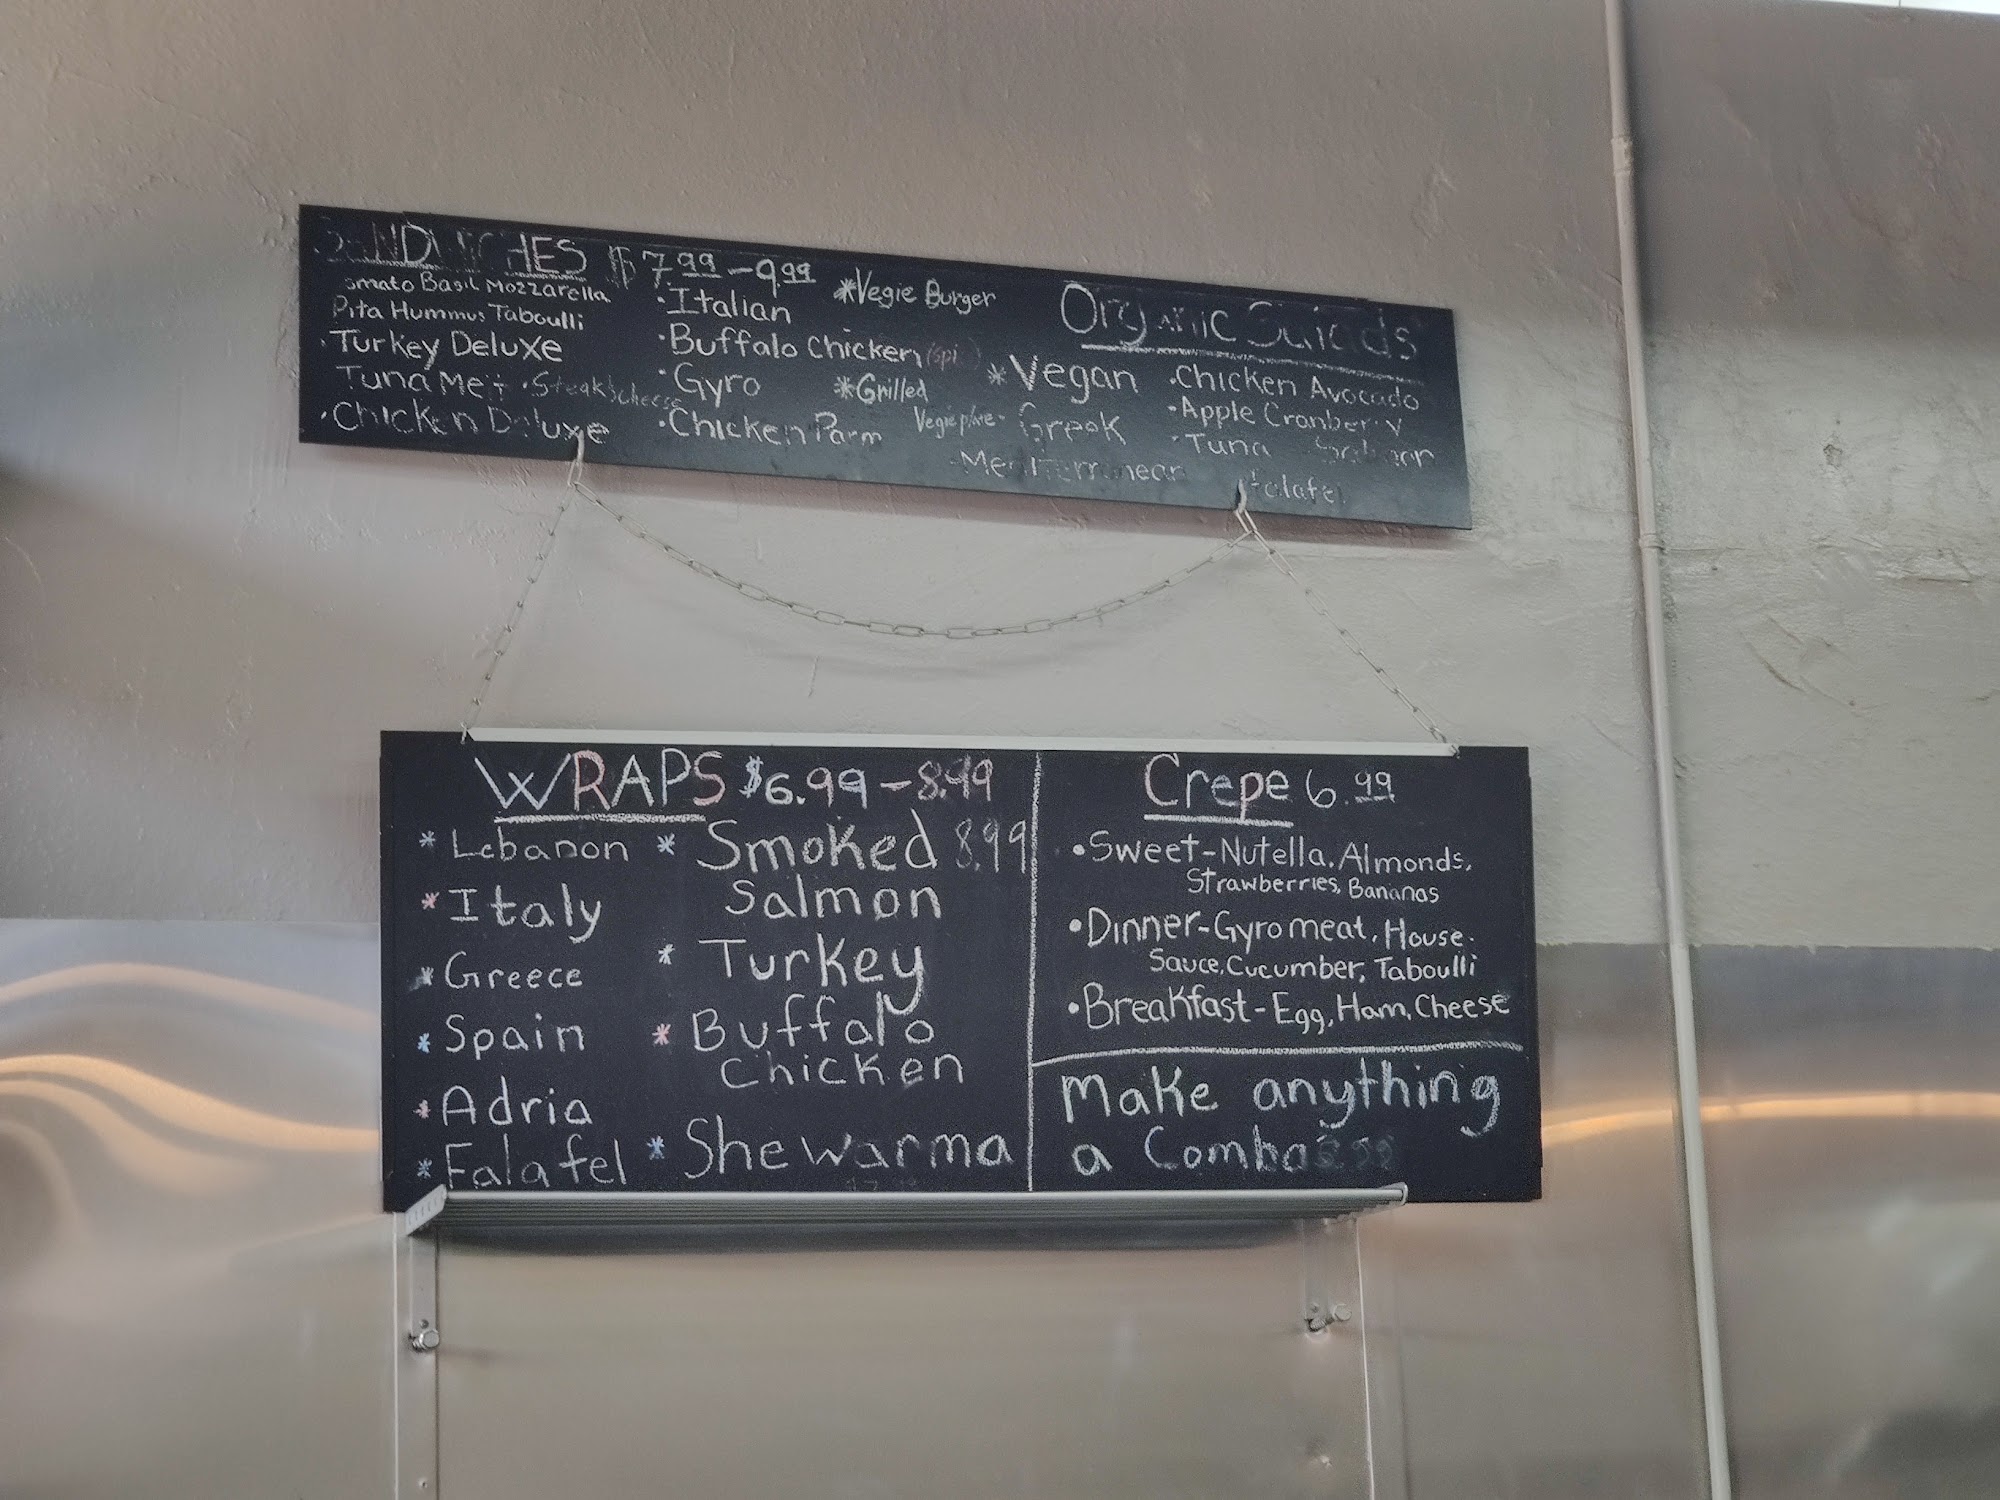 $7.99-9.99
Tomato Basil Mozzarella
Pita Hummus Taboulli
·Turkey Deluxe
Tuna Melt ·Steak&cheese
·Chicken Deluxe
·Italian
·Buffalo Chicken
·Gyro
·Chicken Parm
*Vegie Burger
*Grilled
Organic Salads
*Vegan
Greek
Mediterranean
·Chicken Avocado
·Apple Cranberry
·Tuna
falafel
WRAPS $6.99-8.99
*Lebanon
*Italy
*Greece
*Spain
*Adria
*Falafel
*Smoked 8.99
Salmon
*Turkey
*Buffalo
chicken
*Shewarma
Crepe 6.99
·Sweet-Nutella, Almonds,
Strawberries, Bananas
·Dinner-Gyro meat, House
Sauce, Cucumber, Taboulli
·Breakfast-Egg, Ham, Cheese
Make anything
a Combo